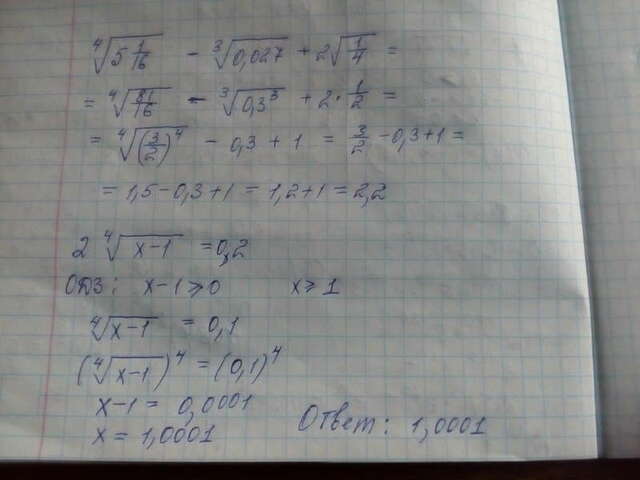 ⁴√(5 1/16) - ³√(0,027) + 2√(1/4) =
= ⁴√(81/16) - ³√(0,3³) + 2 · 1/2 =
= ⁴√((3/2)⁴) - 0,3 + 1 = 3/2 - 0,3 + 1 =
= 1,5 - 0,3 + 1 = 1,2 + 1 = 2,2
2 ⁴√(x-1) = 0,2
ОДЗ: x-1 ⩾ 0 x ⩾ 1
⁴√(x-1) = 0,1
(⁴√(x-1))⁴ = (0,1)⁴
x-1 = 0,0001
x = 1,0001 Ответ: 1,0001